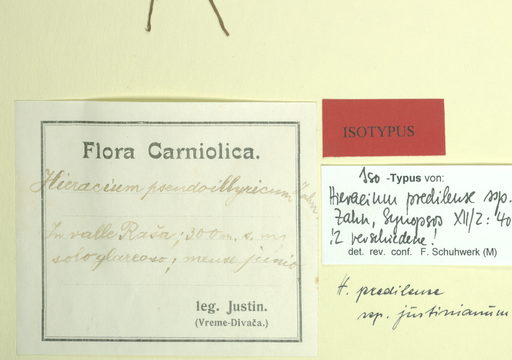 Flora Carniolica.
Hieracium pseudoillyricum Zahn
In valle Raša; 300 m. s. m.
solo glareoso; mense junio
leg. Justin.
(Vreme-Divača.)
ISOTYPUS
Iso -Typus von:
Hieracium predilense ssp.
Zahn, Synopsis XII/2: 40
2 verschiedene!
det. rev. conf. F. Schuhwerk (M)
H. predilense
ssp. justinianum